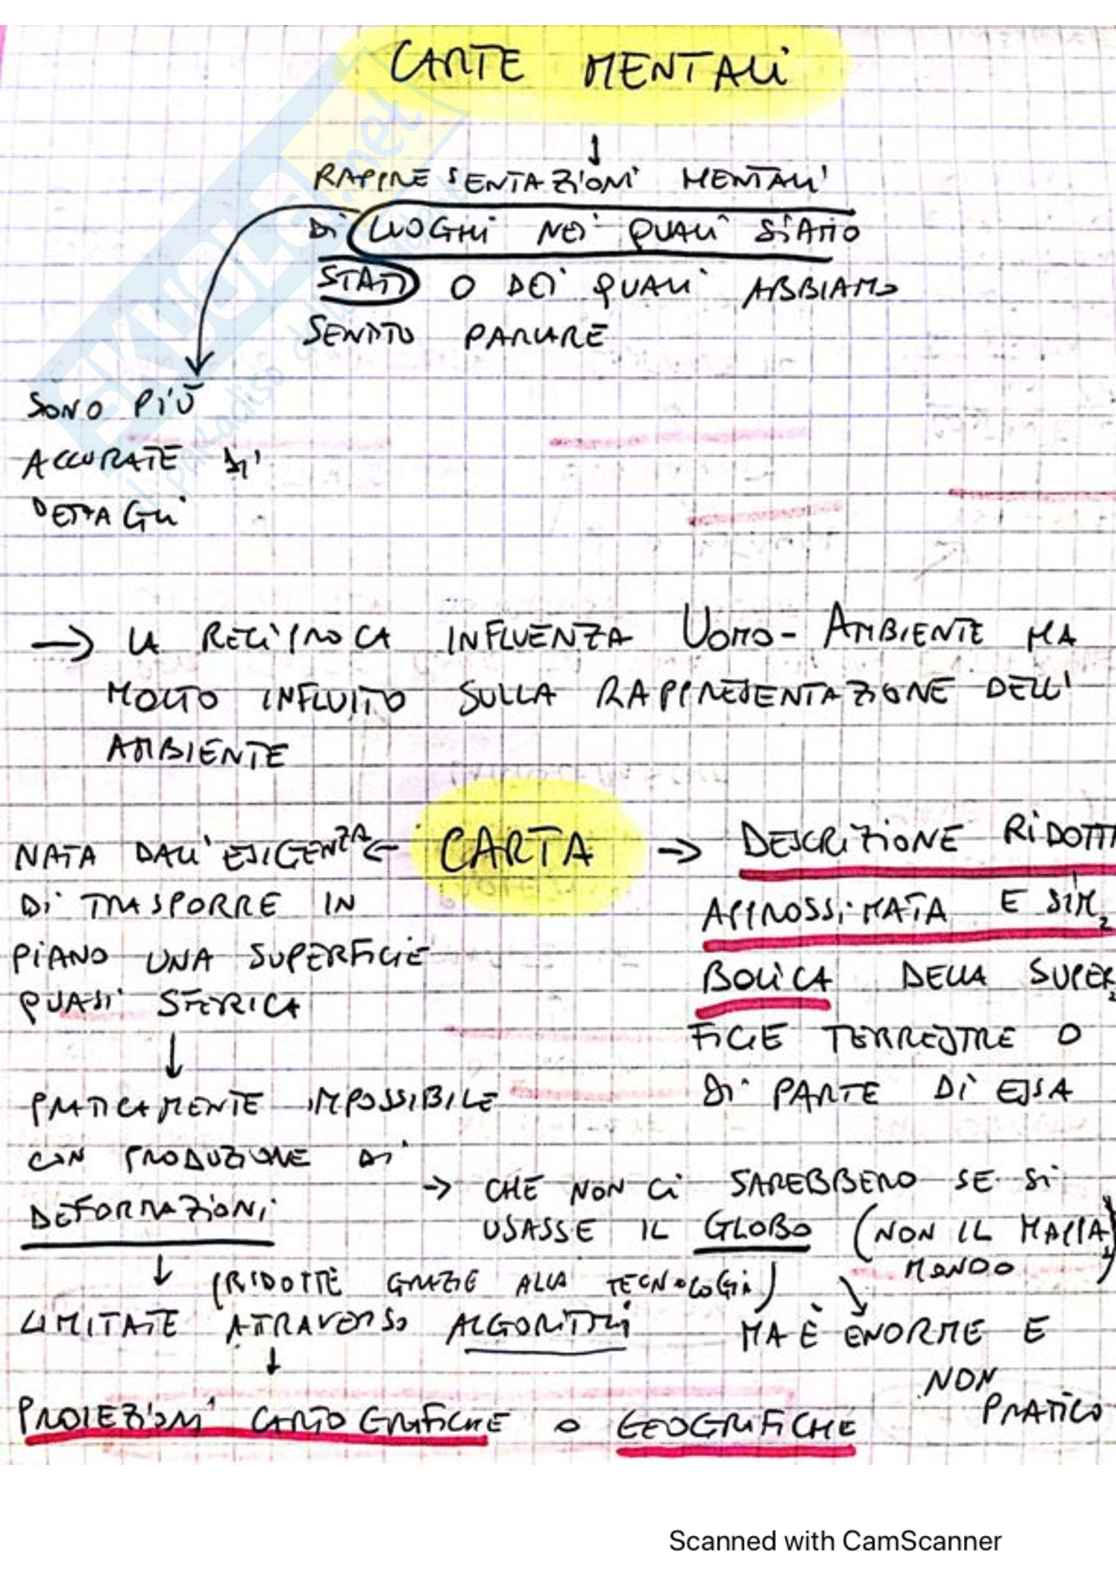 CARTE MENTALI
↓
RAPPRESENTAZIONI MENTALI
DI LUOGHI NEI QUALI SIAMO
STATI O DEI QUALI ABBIAMO
SENTITO PARLARE
SONO PIÙ
ACCURATE DI
DETTAGLI
→ LA RECIPROCA INFLUENZA UOMO-AMBIENTE HA
MOLTO INFLUITO SULLA RAPPRESENTAZIONE DELL'
AMBIENTE
CARTA
NATA DALL'ESIGENZA ←
DI TRASPORRE IN
PIANO UNA SUPERFICIE
QUASI SFERICA
↓
PRATICAMENTE IMPOSSIBILE
CON PRODUZIONE DI
DEFORMAZIONI
→ DESCRIZIONE RIDOTT
APPROSSIMATA E SIM
BOLICA DELLA SUPER
FICIE TERRESTRE O
DI PARTE DI ESSA
→ CHE NON CI SAREBBERO SE SI
USASSE IL GLOBO (NON IL MAPPA
MONDO)
↓ (RIDOTTE GRAZIE ALLA TECNOLOGIA)
LIMITATE ATTRAVERSO ALGORITMI
MA È ENORME E
NON
PRATICO
↓
PROIEZIONI CARTOGRAFICHE O GEOGRAFICHE
SKUOLA.net
Scanned with CamScanner